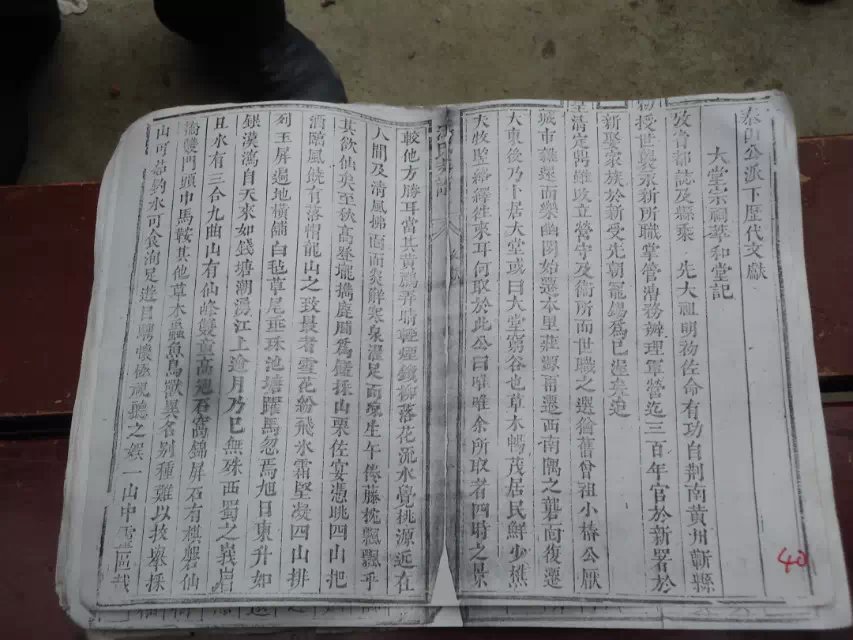 泰山公派下歷代文獻
大堂宗祠華和堂記
攷省郡誌及縣乘 先大祖明物佐命有功自荆南黄州蘄縣
初授世襲永新所職掌管漕務辦理軍營迄三百年官於新署於
新娶家族於新受先朝寵錫爲已渥矣迨
皇清定陽雖改立營守及衛所而世職之選猶舊曾祖小椿公厭
城市雜還而樂幽閒始遷本里莊源甫遷西南隅之龔而復遷
大東後乃卜居大堂或曰大堂窮谷也草木暢茂居民鮮少樵
夫牧豎絡繹往來耳何取於此公曰唯唯余所取者四時之景
較他方勝耳當其黄鶯弄晴輕煙鎖柳落花流水覺桃源近在
人間及清風拂面而炎解寒泉濯足而爽生午倦藤枕飄飄乎
其飲仙矣至秋高登壠擕鹿脯爲肴採山栗佐宴憑眺四山把
酒臨風饒有落帽龍山之致最者雪花紛飛氷霜堅凝四山排
列玉屏遍地横舖白毡草尾垂珠池塘躍馬忽焉旭日東升如
銀漢瀉自天來如錢塘潮湧江上逾月乃已無殊西蜀之峩眉
且水有三合九曲山有仙峰雙童高冠石窩錦屏石有棋磐仙
橋雙門頭中馬鞍其他草木蟲魚鳥獸異名别種難以枚舉採
山可茹釣水可食洵足遊目騁懷依視聽之娛一山中靈區哉
40